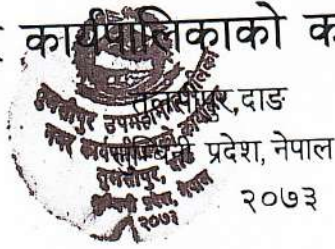 कार्यपालिकाको क
तुलसीपुर, दाङ
लुम्बिनी प्रदेश, नेपाल
२०७३
तुलसीपुर उपमहानगरपालिका
नगर कार्यपालिकाको कार्यालय
तुलसीपुर, दाङ
लुम्बिनी प्रदेश, नेपाल
२०७३